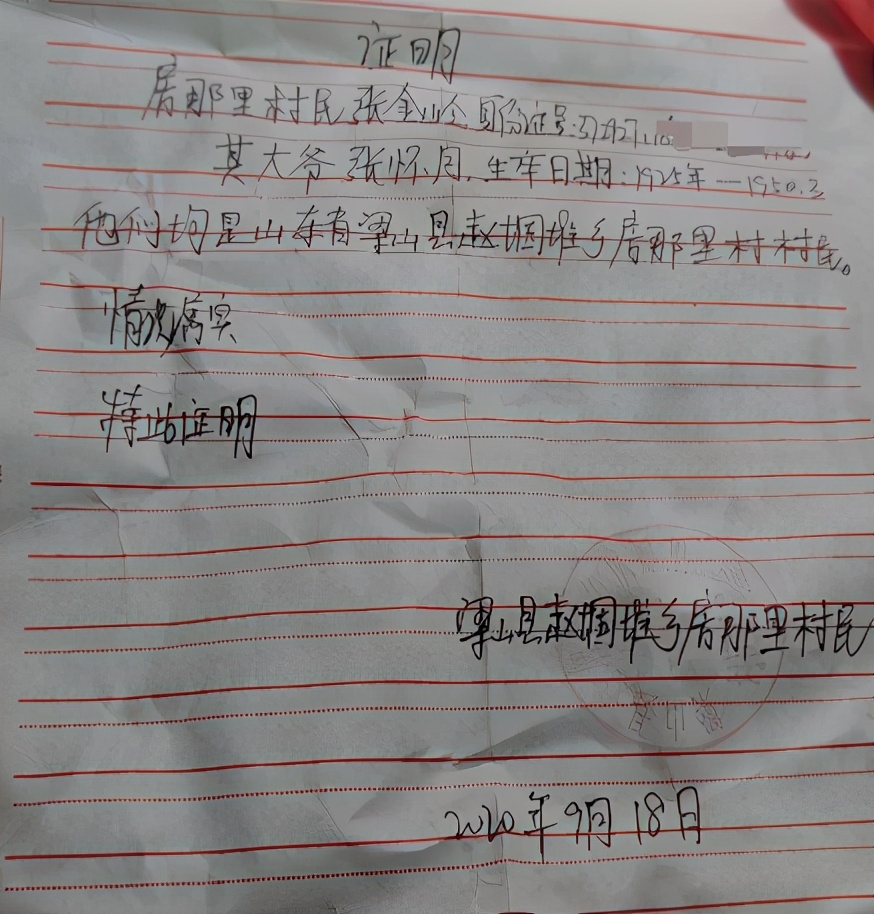 证明
居那里村民张金岭身份证号:372927
其大爷张怀月.生卒日期:1925年—1950.2
他们均是山东省梁山县赵堌堆乡居那里村村民。
情况属实
特此证明
梁山县赵堌堆乡居那里村民
2020年9月18日